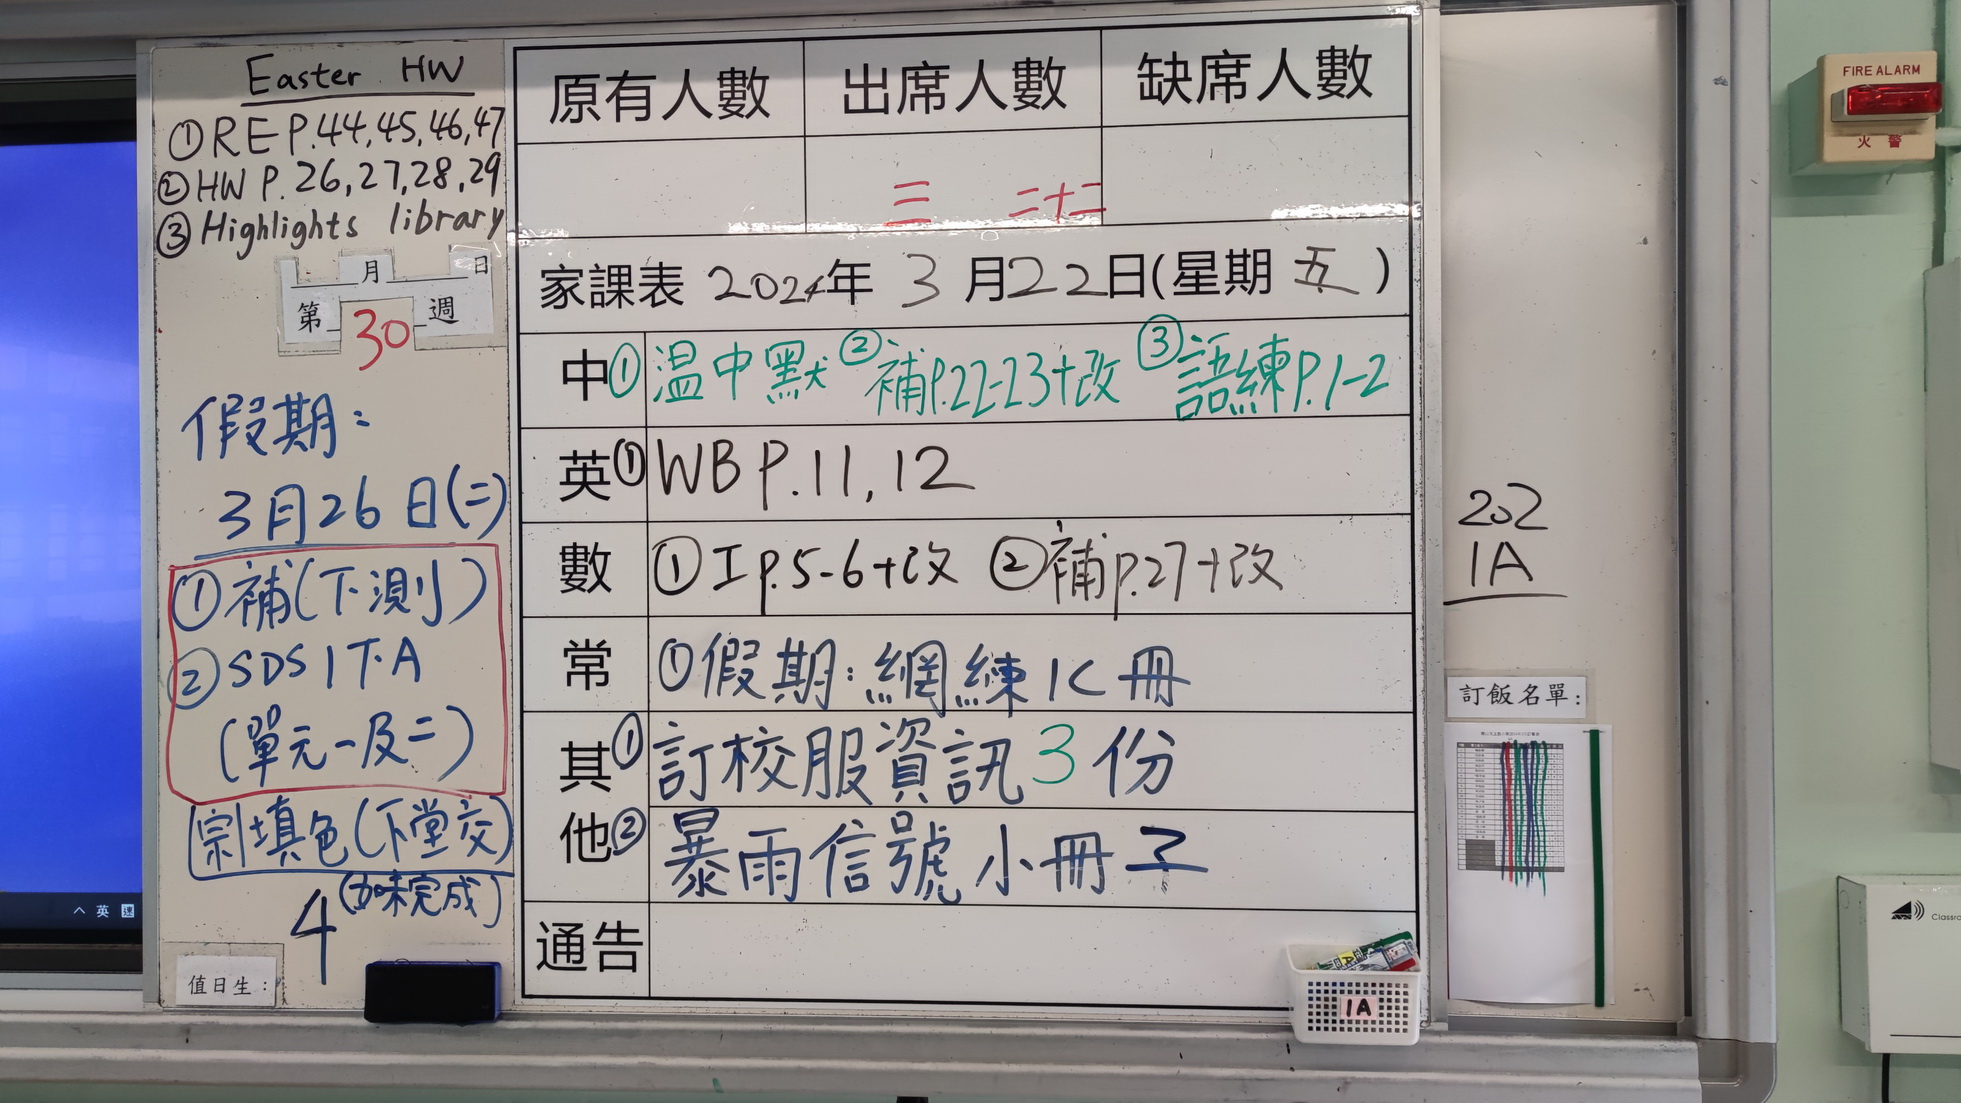 Easter HW
① RE P.44,45,46,47
② HW P.26,27,28,29
③ Highlights library
月 日
三 二十二
第 30 週
假期:
3月26日(二)
① 補(下測)
② SDS 1下A
(單元一及二)
宗 填色(下堂交)
(如未完成)
4
值日生:
原有人數 出席人數 缺席人數
家課表 2024年 3月22日(星期五)
中 ① 温中默 ② 補P.22-23+改 ③ 語練P.1-2
英 ① WB P.11,12
數 ① I P.5-6+改 ② 補P.27+改
常 ① 假期:網練1C冊
其他 ① 訂校服資訊3份
② 暴雨信號小冊子
通告
1A
202
1A
訂飯名單:
FIRE ALARM
火警
英